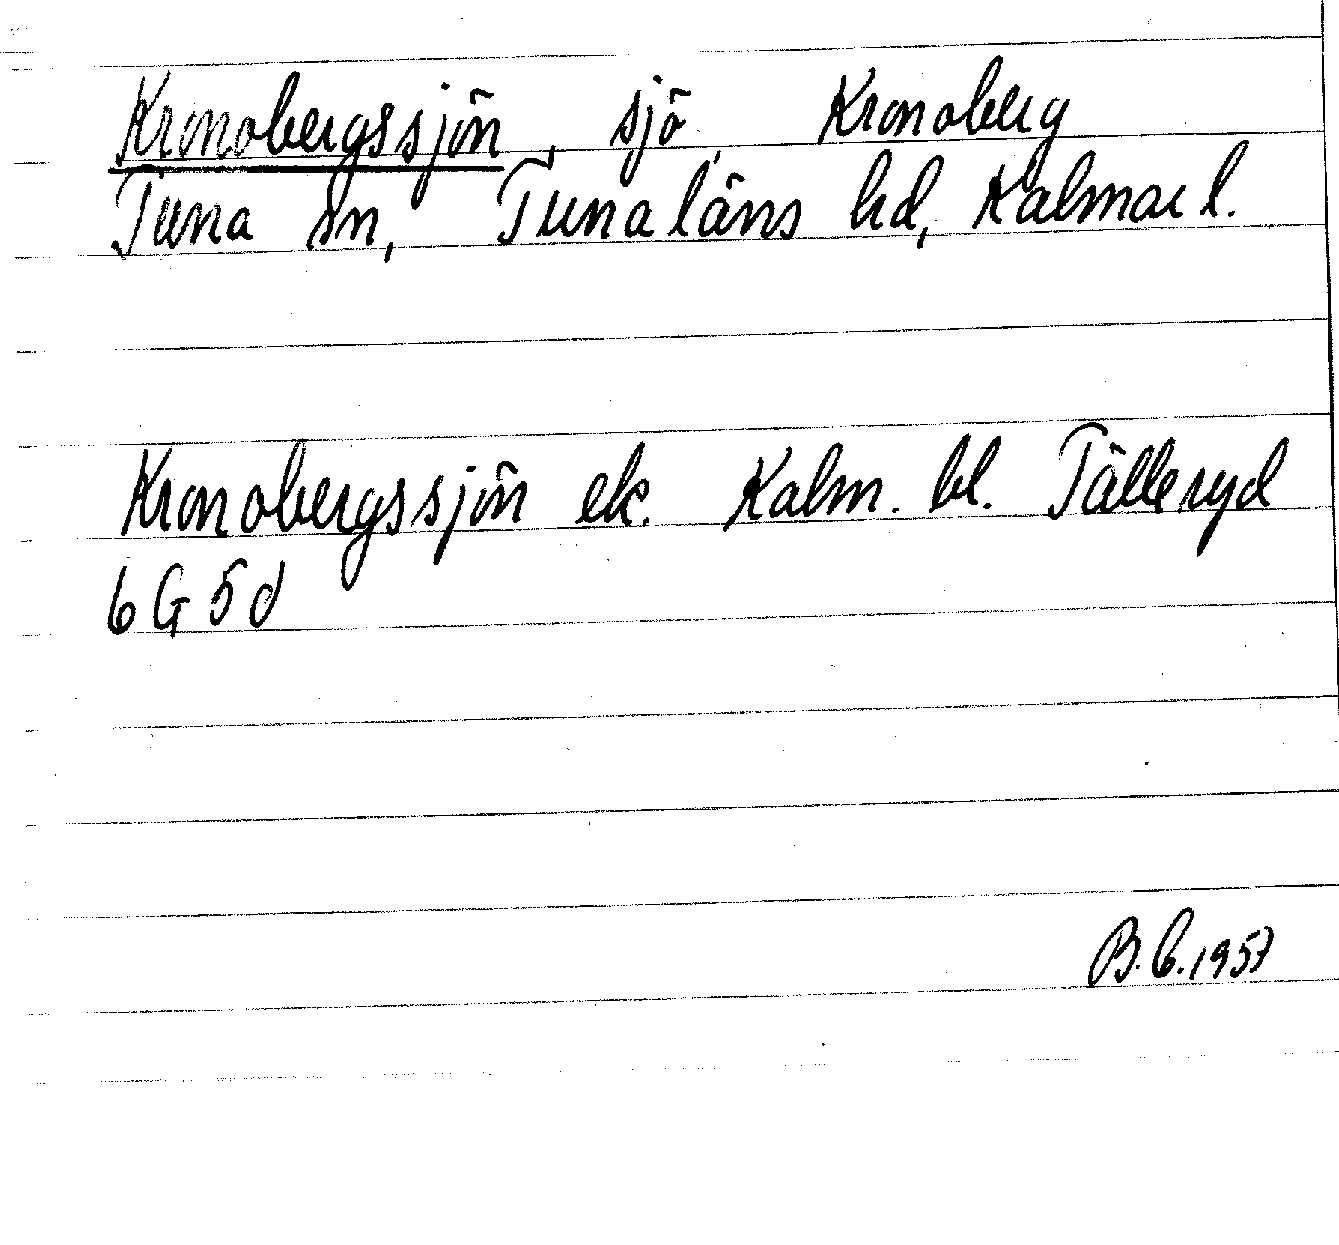 Kronobergssjön, sjö, Kronoberg
Tuna sn, Tunaläns hd, Kalmar l.
Kronobergssjön ek. Kalm. bl. Tälleryd
6G5d
B.C.1957